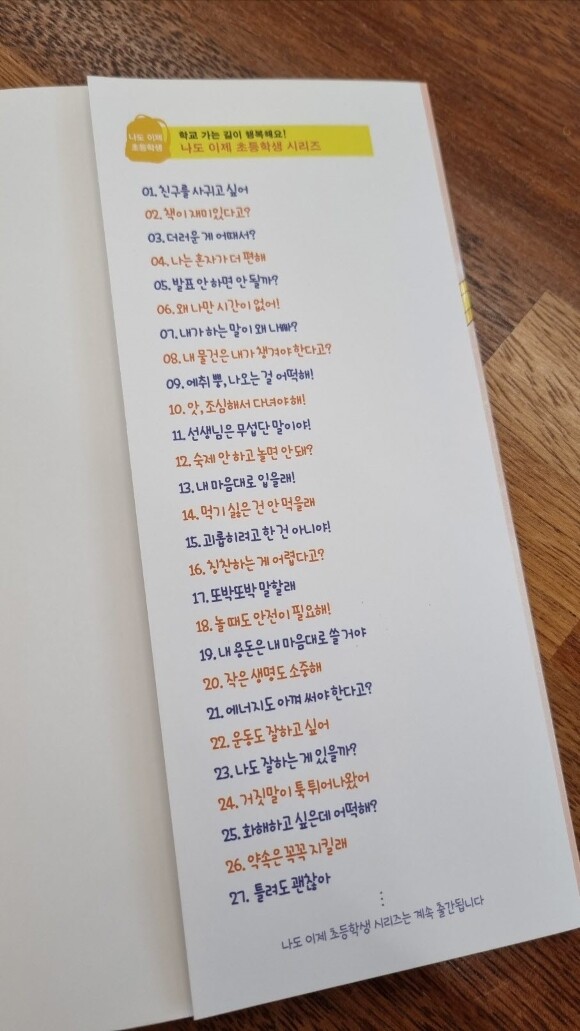 나도 이제
초등학생
학교 가는 길이 행복해요!
나도 이제 초등학생 시리즈
01. 친구를 사귀고 싶어
02. 책이 재미있다고?
03. 더러운 게 어때서?
04. 나는 혼자가 더 편해
05. 발표 안 하면 안 될까?
06. 왜 나만 시간이 없어!
07. 내가 하는 말이 왜 나빠?
08. 내 물건은 내가 챙겨야 한다고?
09. 에취 뿡, 나오는 걸 어떡해!
10. 앗, 조심해서 다녀야 해!
11. 선생님은 무섭단 말이야!
12. 숙제 안 하고 놀면 안 돼?
13. 내 마음대로 입을래!
14. 먹기 싫은 건 안 먹을래
15. 괴롭히려고 한 건 아니야!
16. 칭찬하는 게 어렵다고?
17. 또박또박 말할래
18. 놀 때도 안전이 필요해!
19. 내 용돈은 내 마음대로 쓸 거야
20. 작은 생명도 소중해
21. 에너지도 아껴 써야 한다고?
22. 운동도 잘하고 싶어
23. 나도 잘하는 게 있을까?
24. 거짓말이 툭 튀어나왔어
25. 화해하고 싶은데 어떡해?
26. 약속은 꼭꼭 지킬래
27. 틀려도 괜찮아
⋮
나도 이제 초등학생 시리즈는 계속 출간됩니다